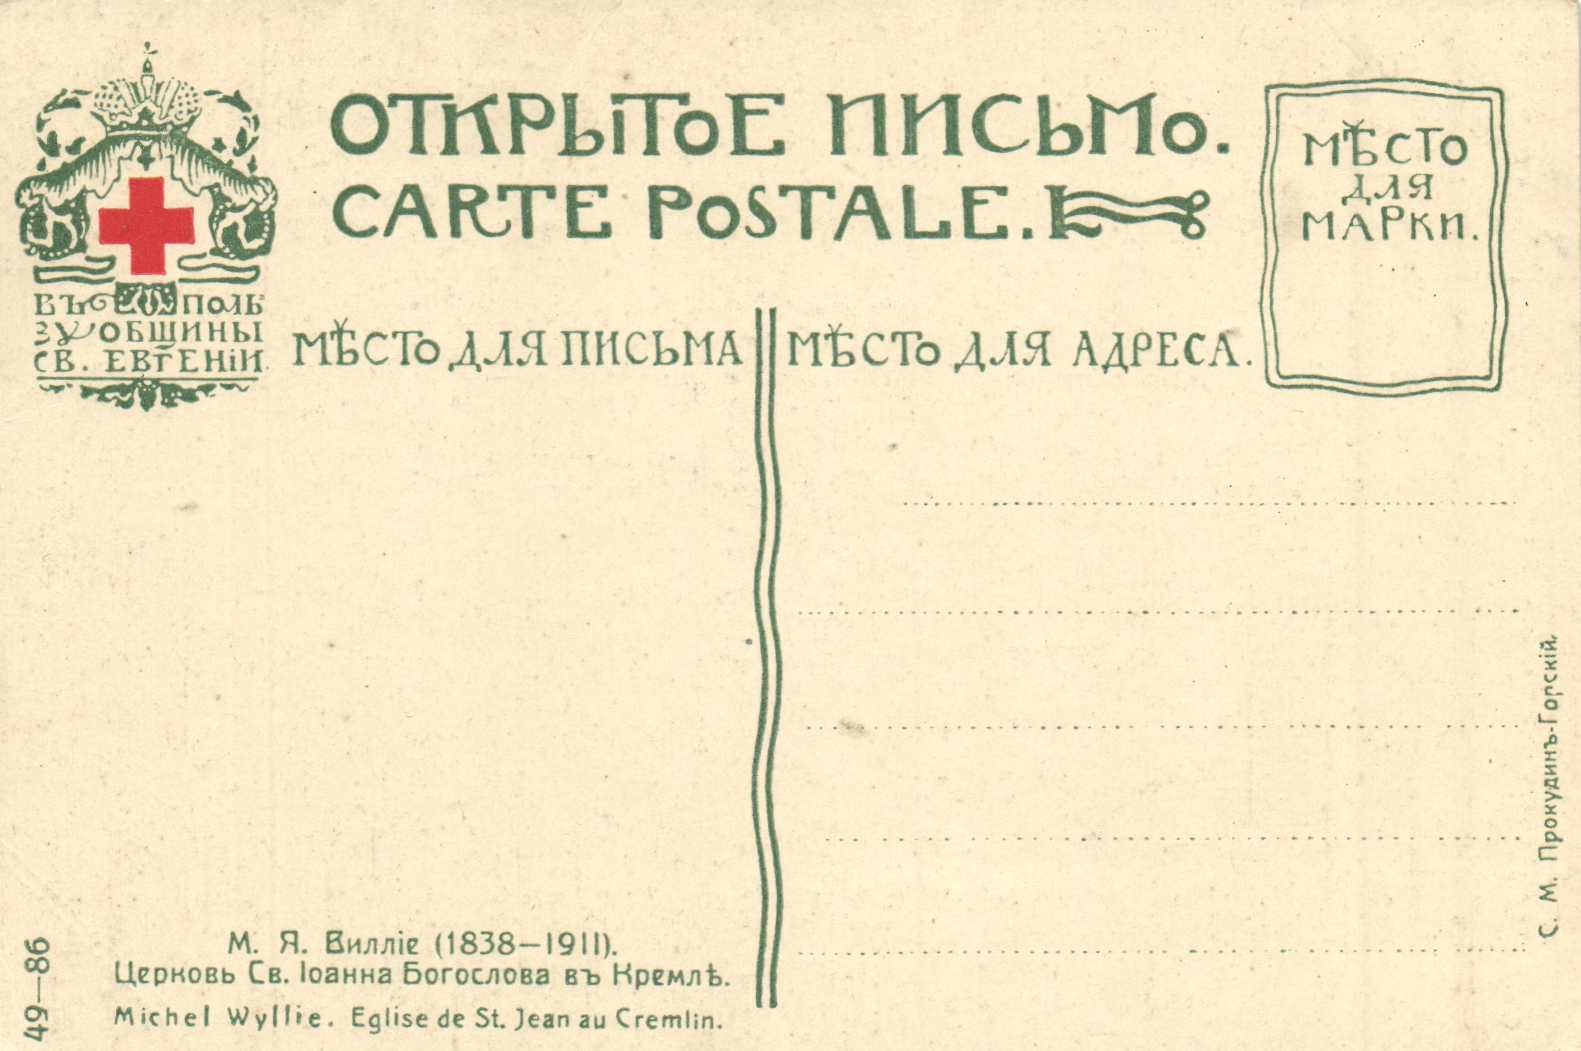 ОТКРЫТОЕ ПИСЬМО.
CARTE POSTALE.
МѢСТО
ДЛЯ
МАРКИ.
ВЪ ПОЛЬ
ЗУ ОБЩИНЫ
СВ. ЕВГЕНІИ.
МѢСТО ДЛЯ ПИСЬМА
МѢСТО ДЛЯ АДРЕСА.
С. М. Прокудинъ-Горскій.
49—86
М. Я. Вилліе (1838—1911).
Церковь Св. Іоанна Богослова въ Кремлѣ.
Michel Wyllie. Eglise de St. Jean au Cremlin.